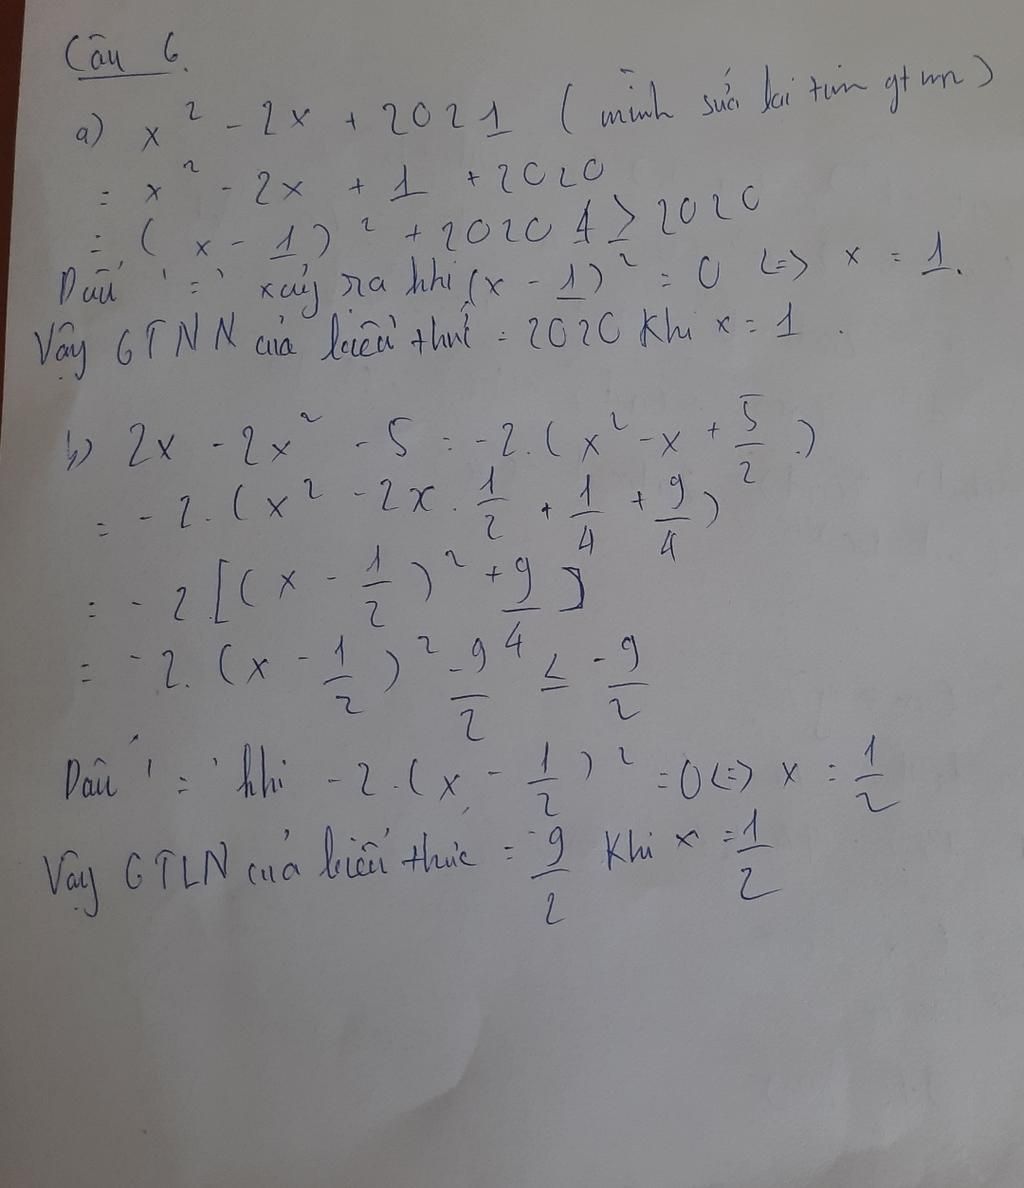 Câu 6.
a) x² - 2x + 2021 (mình sửa lại tìm gtnn)
= x² - 2x + 1 + 2020
= (x - 1)² + 2020 ≥ 2020
Dấu '=' xảy ra khi (x - 1)² = 0 <=> x = 1.
Vậy GTNN của biểu thức = 2020 khi x = 1.
b) 2x - 2x² - 5 = -2.(x² - x + 5/2.)
= -2.(x² - 2x.1/2 + 1/4 + 9/4)
= -2.[(x - 1/2)² + 9/4]
= -2.(x - 1/2)² - 9/2 ≤ -9/2
Dấu '=' khi -2.(x - 1/2)² = 0 <=> x = 1/2
Vậy GTLN của biểu thức = -9/2 khi x = 1/2